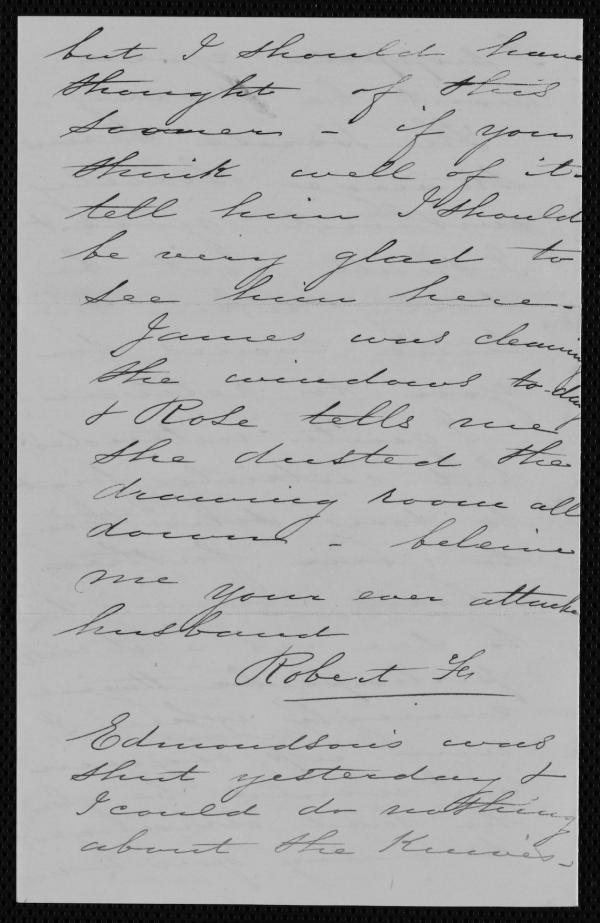 but I should have
thought of this
sooner - if you
think well of it -
tell him I should
be very glad to
see him here -
James was cleaning
the windows to-day
& Rose tells me
she dusted the
drawing room all
down - beleive
me your ever attache
husband
Robert
Edmondson's was
shut yesterday &
I could do nothing
about the Knives -